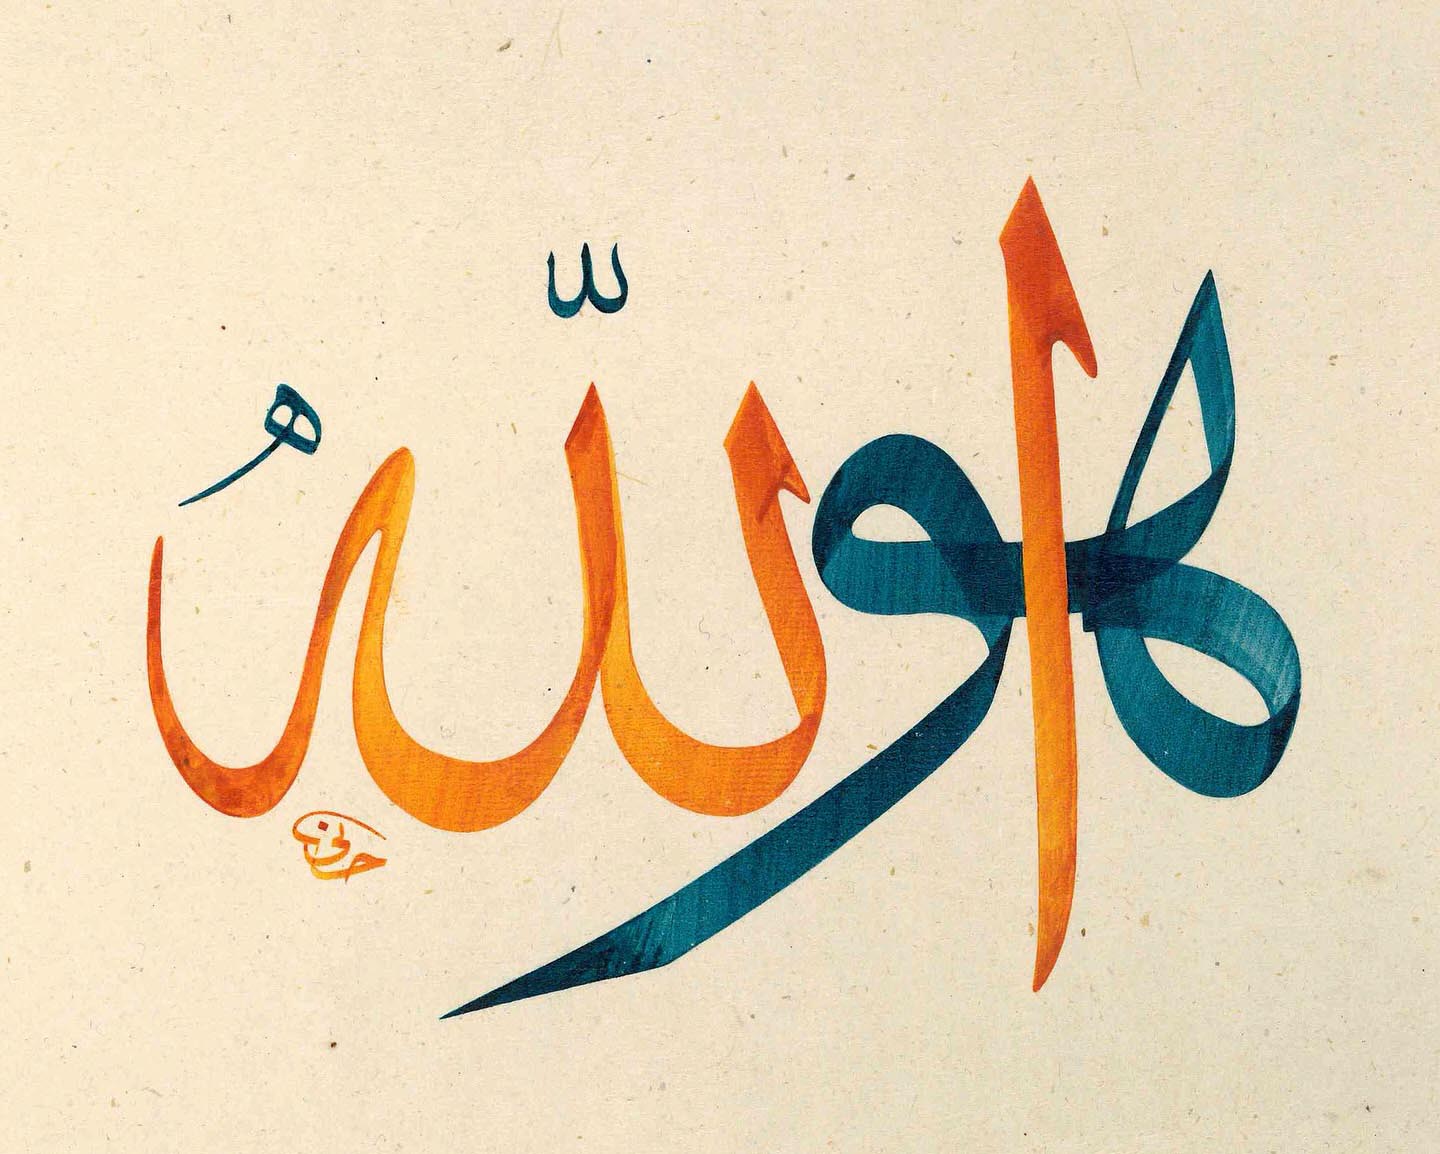 هو الله